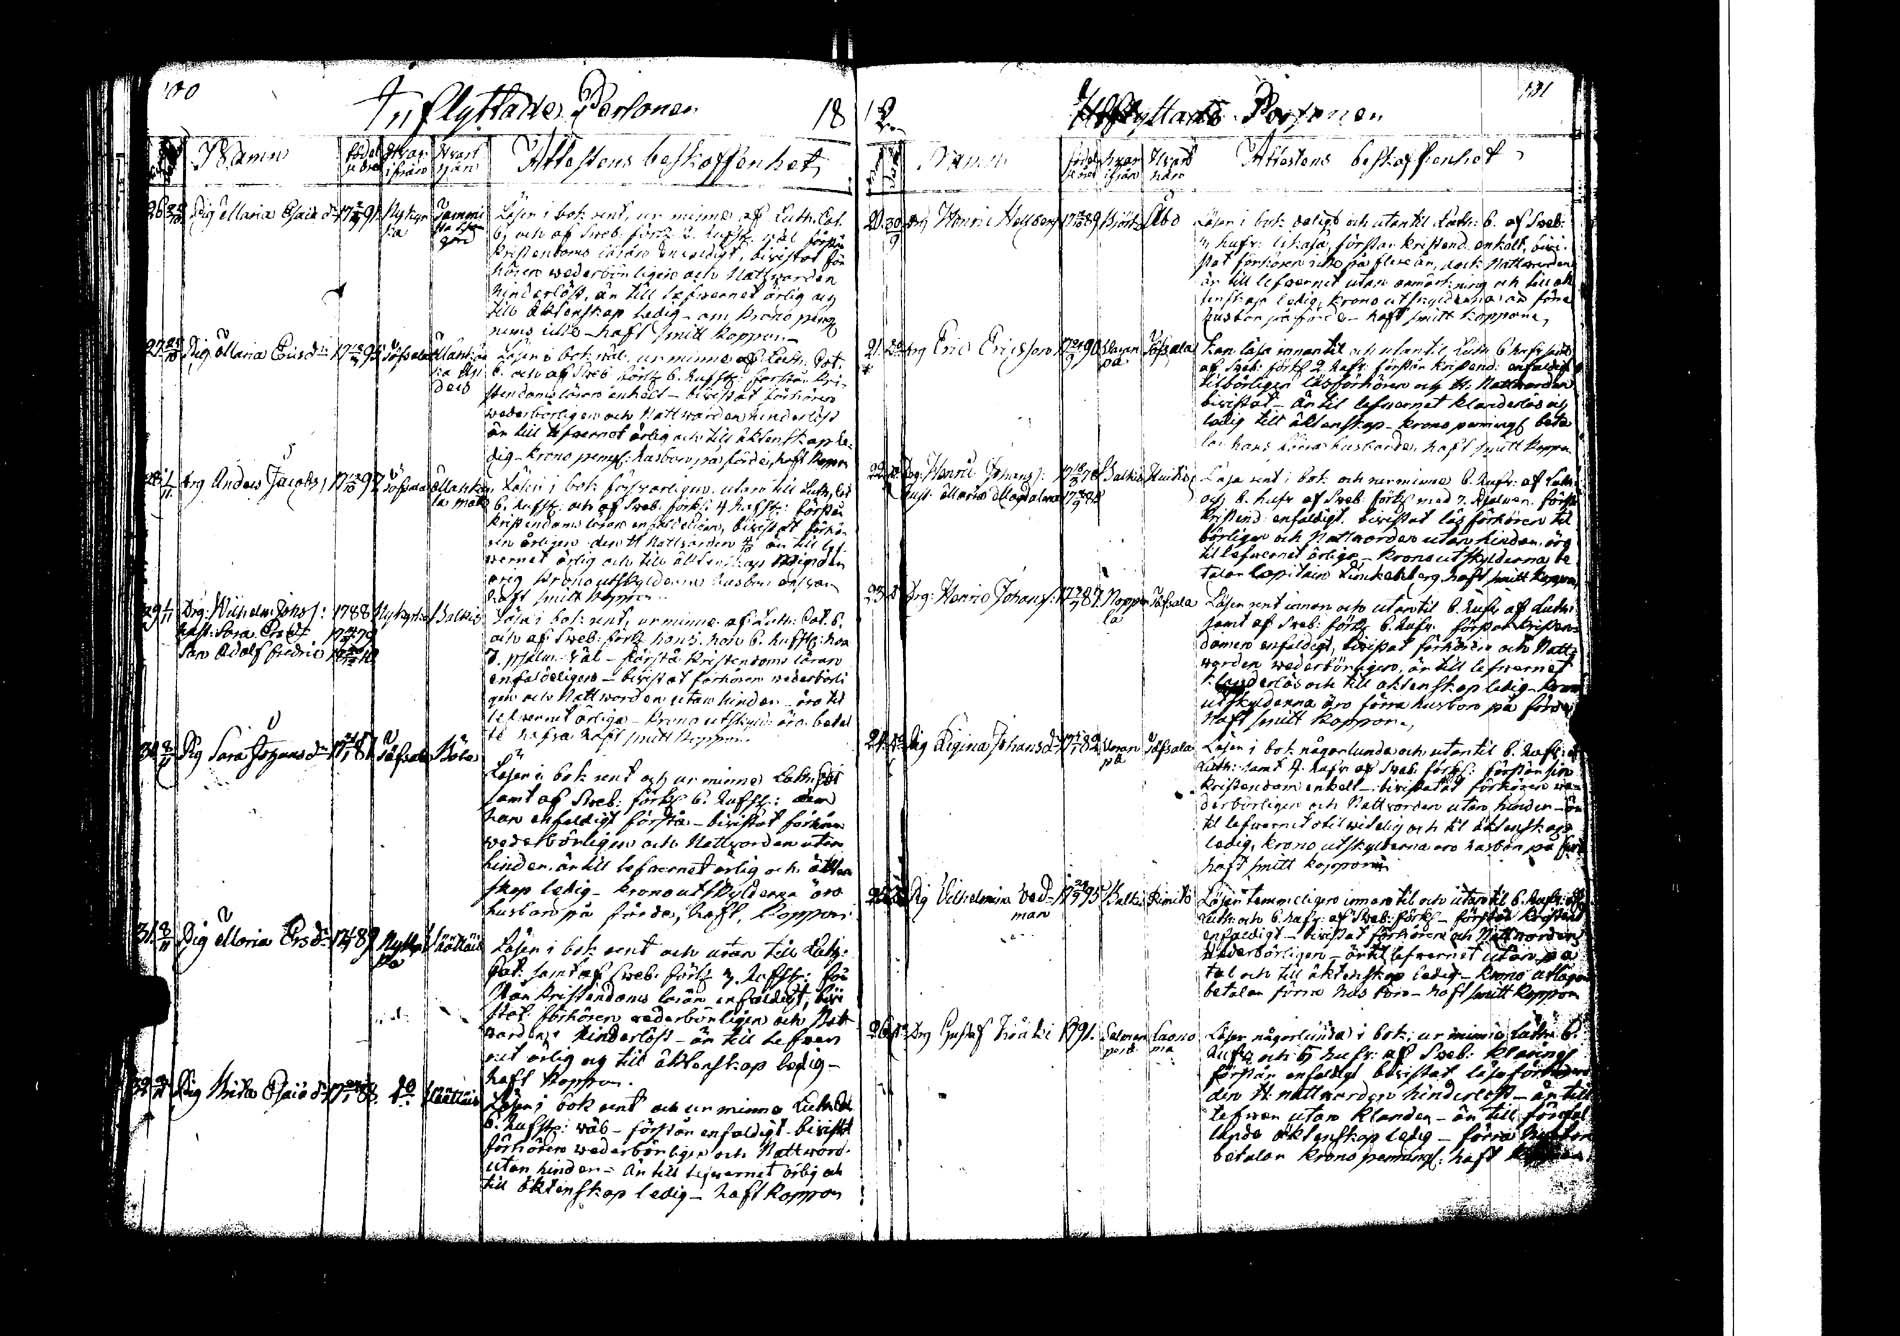 100
Inflyttade Personer 18
Namn födel seåret Hvar ifrån Hvart hän Attestens beskaffenhet
26 Pig Maria Esaiæ dr 17 91 Nykyr ka
Läser i bok rent, ur minne af Luth. Cat.
6. och af Sveb. förk. 2. Hufst. väl förstår
Kristendoms läran enfaldigt, bivistat för
hören wederbörligen och Nattwarden
hinderlöst, är till lefwernet ärlig och
till äktenskap ledig - om krono penn
haft smitt koppor
27 Pig Maria Erics dr 17 95 Töfsala
Läser i bok väl, ur minne af Luth. Cat.
6. och af Sveb. förk. 6. Hufst. förstår Kri-
stendoms läran enkelt - bivistat förhören
wederbörligen och Nattwarden hinderlöst
är till lefwernet ärlig och till äktenskap le-
dig - krono peng. husbon på förde, haft koppor
28 Drg Anders Jacobs. 17 97 Töfsala
Läser i bok försvarligen utan till Luth. Cat
6. Hufst. och af Sveb. förk. 4 Hufst. förstår
Kristendoms läran enfaldeligen, bivistat förhö-
ren årligen den H. Nattvarden är till lef-
wernet ärlig och till äktenskap
Krono utskylderna husbon
haft smitt koppor
29 Drg. Wilhelm Johs s. 1788 Nykyrka Balkis
hust. Sara 17 79
Son Adolf Fredric
Läser i bok rent, ur minne af Luth. Cat. 6.
och af Sveb. förk. hans. hon 6. Hufst. hon
7. psalm. väl - förstå Kristendoms läran
enfaldeligen - bivistat förhören wederbörli
gen och Nattwarden utan hinder - äro til
lefwernet ärliga - Krono utskyld. äro betal
te hafva haft smitt koppor.
30 Pig Sara Johans dr 17 81 Töfsala
Läser i bok rent och ur minne Luth. Cat
samt af Sveb. förk. 6. Hufst. dem
han enfaldigt förstå - bivistat förhören
wederbörligen och Nattvarden utan
hinder. är till lefwernet ärlig och äkten
skap ledig - krono utskylderna äro
husbon på förde, haft, koppor.
31 Pig Maria Ers dr 17 89
Läser i bok rent och utan till Luth.
Cat. samt af Sveb. förk. 3 Hufst. för
står Kristendoms läran enfaldigt, bivi
stat förhören wederbörligen och Natt
warden hinderlöst - är till lefwer
net ärlig og till äktenskap ledig -
haft koppor.
32 Pig Ulrika Esaiæ dr 17 88. do
Läser i bok rent och ur minne Luth. Cat
6. Hufst. väl - förstår enfaldigt - bivistat
förhören wederbörligen och Nattward.
utan hinder - är till lefwernet ärlig och
till äktenskap ledig - haft koppor
12 Utflyttade Personer 101
Namn födel seåret Hvar ifrån Hvart hän Attestens beskaffenhet
20. 30/9 Drg Henric Hellberg 17 89 Åbo
Läser i bok redigt och utantil Luth. 6. af Sveb.
3 Hufv. likaså, förstår Kristend. enkelt, bivi-
stat förhören icke på flere år, dock Nattvarden
är till lefwernet utan anmärkning och till äk
tenskap ledig, krono utskylderna äro förra
husbon på förde - haft smitt kopporne,
21. do Drg Eric Ericsson 17 90 Töfsala
Kan läsa innantil och utantil Luth. 6 Hufv. samt
af Sveb. förk. 2 Hufv. förstår Kristend. enfaldigt
tilbörligen läsförhören och H. Nattvarden
bivistat - är til lefwernet klanderlös och
ledig till äktenskap - krono penning betal
lar hans förra husbonde, haft smitt koppor
22 do Drg. Henric Johans s. 17 78 Balkis
Hust. Maria Magdalena 17
Läsa rent i bok och ur minne 6. Hufv. af Luth.
och 6. hufv. af Sveb. förk. med 7. psalmer. förstå
Kristend. enfaldigt. bivistat läsförhören til
börligen och Nattvarden utan hinder. äro
til lefwernet ärlige - krono utskylderna be
talar Capitain Finkelberg haft smitt koppor,
23. do Drg. Henric Johans s. 17 87 Töfsala
Läser rent innan och utantil 6. Hufv. af Luth.
samt af Sveb. förk. 6. Hufv. förstår Kristen-
domen enfaldigt, bivistat förhören och Natt-
varden wederbörligen, är till lefwernet
klanderlös och till äktenskap ledig - krono
utskylderna äro förra husbon på förde
haft smitt kopporne,
24. do Pig Regina Johans dr 17 Töfsala
Läser i bok någorlunda och utantil 6. Hufv. af
Luth. samt 4. Hufv. af Sveb. förk. förstår sin
Kristendom enkelt - bivistat förhören we-
derbörligen och Nattvarden utan hinder - är
til lefwernet otilvitelig och til äktenskap
ledig, krono utskylderna äro husbon på förd
haft smitt kopporne
25. do Pig Vilhelmina Wad- man 17 95 Balkis Rimito
Läser temmeligen innantil och utantil 6. Hufv. af
Luth. och 6. hufv. af Sveb. förk. - förstår Kristend
enfaldigt - bivistat förhören och Nattvarden
wederbörligen - är til lefwernet utan på
tal och till äktenskap ledig - krono utlagor
betalar förra husbon - haft smitt koppor
26. do Drg Gustaf 1791.
Läser någorlunda i bok, ur minne Luth. 6.
Hufv och 5 hufv. af Sveb. klaring
förstår enfaldigt bivistat läseförhören
den H. nattvarden hinderlöst - är till
lefwer utan klander - är till förefal
lande äktenskap ledig - förra husbon
betalar krono penning. haft